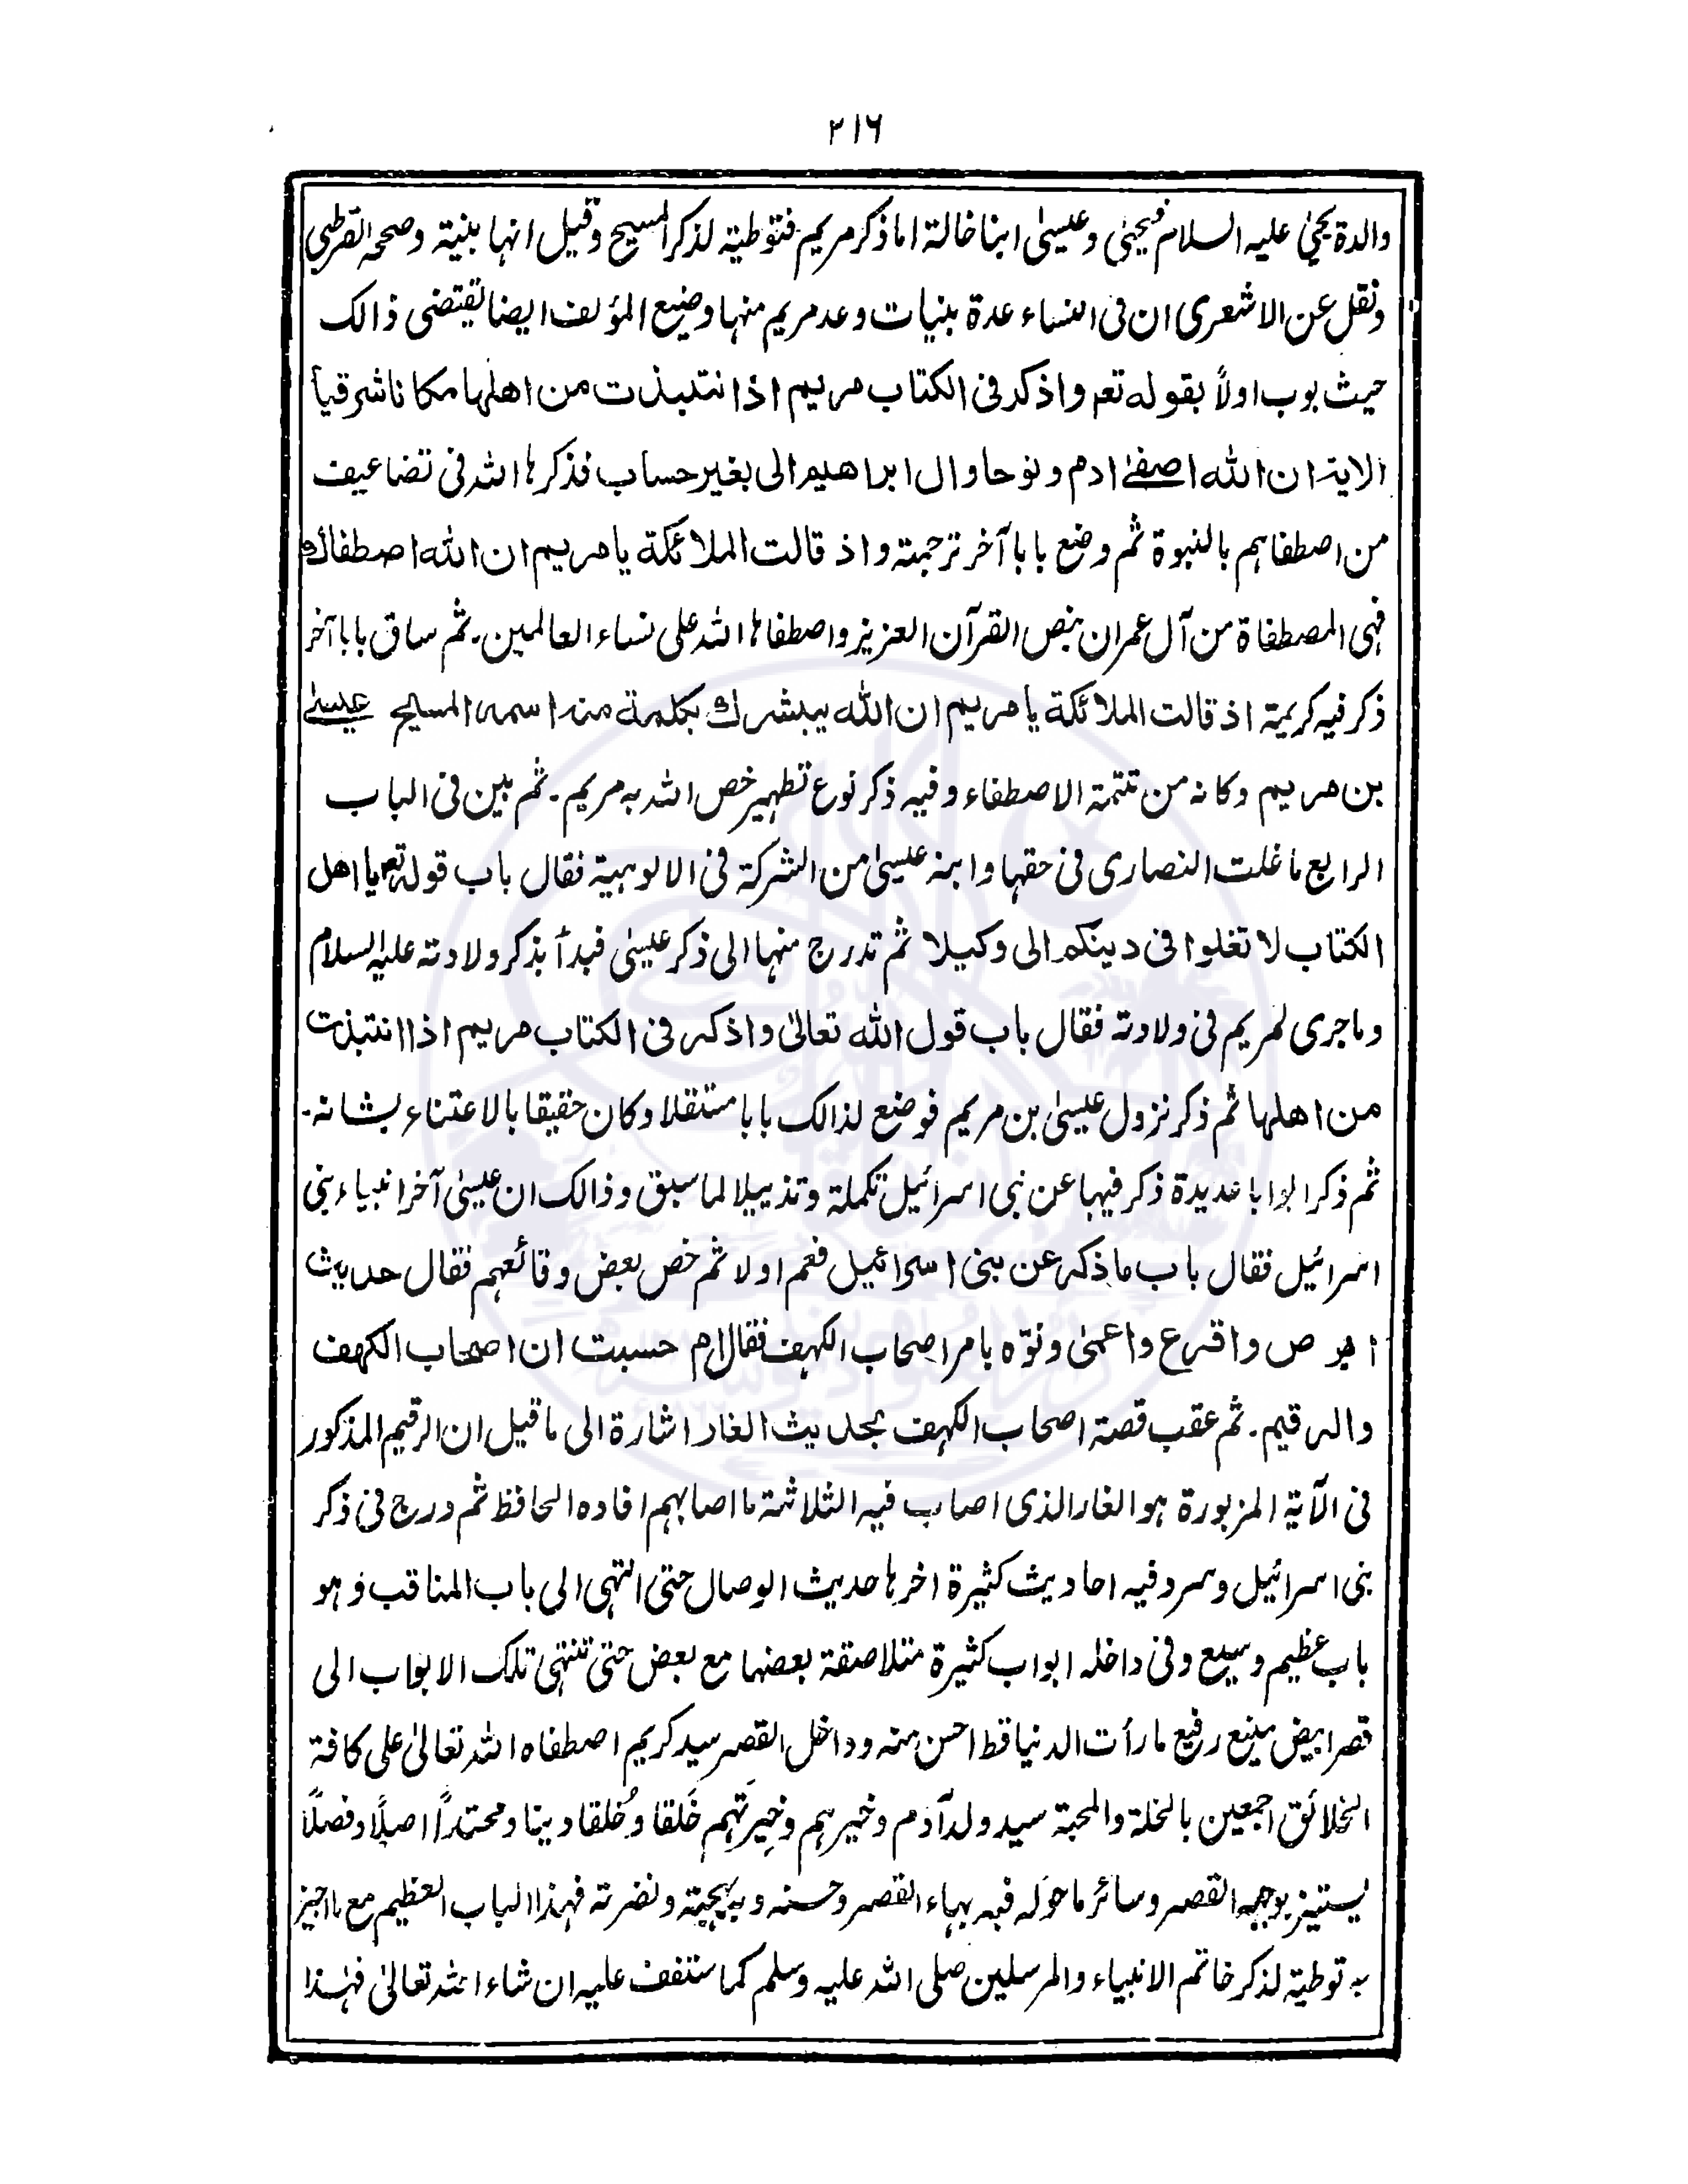 ۲۱۶
والدة يحيىٰ عليه السلام فيحيىٰ وعيسىٰ ابنا خالة اما ذكر مريم فتوطية لذكر المسيح وقيل انها بنبية وصححه القرطبي
ونقل عن الاشعرى ان فى النساء عدة بنيات وعد مريم منها وضيع المؤلف ايضا يقتضى ذالك
حيث بوب اولاً بقوله تعم واذكر فى الكتاب مريم اذا نتبذت من اهلها مكانا شرقياً
الاية ان الله اصطفىٰ ادم ونوحا وال ابراهيم الى بغير حساب فذكرها الله فى تضاعيف
من اصطفاهم بالنبوة ثم وضع بابا آخر ترجمته واذ قالت الملائكة يا مريم ان الله اصطفاك
فهى المصطفاة من آل عمران بنص القرآن العزيز واصطفاها الله على نساء العالمين۔ ثم ساق بابا آخر
ذكر فيه كريمة اذ قالت الملائكة يا مريم ان الله يبشرك بكلمة منه اسمه المسيح عيسىٰ
بن مريم وكانه من تتمة الاصطفاء وفيه ذكر نوع تطهير خص الله به مريم۔ ثم بين فى الباب
الرابع ما غلت النصارى فى حقها وابنه عيسىٰ من الشركة فى الالوهية فقال باب قوله تعم يا اهل
الكتاب لا تغلوا فى دينكم الى وكيلا ثم تدرج منها الى ذكر عيسىٰ فبدأ بذكر ولادته عليه السلام
وما جرى لمريم فى ولادته فقال باب قول الله تعالىٰ واذكر فى الكتاب مريم اذا انتبذت
من اهلها ثم ذكر نزول عيسىٰ بن مريم فوضع لذالك بابا مستقلا وكان حقيقا بالاعتناء بشانه۔
ثم ذكر ابوابا عديدة ذكر فيها عن بنى اسرائيل تكملة وتذييلا لما سبق وذالك ان عيسىٰ آخر انبياء بنى
اسرائيل فقال باب ما ذكر عن بنى اسرائيل فعم اولا ثم خص بعض وقائعهم فقال حديث
ابرص واقرع واعمىٰ ونوّه بامر اصحاب الكهف فقال ام حسبت ان اصحاب الكهف
والرقيم۔ ثم عقب قصة اصحاب الكهف بحديث الغار اشارة الى ما قيل ان الرقيم المذكور
فى الآية المزبورة هو الغار الذى اصاب فيه الثلاثة ما اصابهم افاده الحافظ ثم درج فى ذكر
بنى اسرائيل وسرد فيه احاديث كثيرة اخرها حديث الوصال حتى انتهى الى باب المناقب وهو
باب عظيم وسيع وفى داخله ابواب كثيرة متلاصقة بعضها مع بعض حتى تنتهى تلك الابواب الى
قصر ابيض منيع رفيع ما رأت الدنيا قط احسن منه وداخل القصر سيد كريم اصطفاه الله تعالىٰ على كافة
الخلائق اجمعين بالخلة والمحبة سيد ولد آدم وخيرهم وخيرتهم خَلقا وخُلقا ودينا ومحتداً اصلاً وفصلاً
ليستنيز بوجهه القصر وسائر ما حوله فبه بهاء القصر وحسنه وبه بهجته ونضرته فهذا الباب العظيم مع ما اجيز
به توطية لذكر خاتم الانبياء والمرسلين صلى الله عليه وسلم كما ستقف عليه ان شاء الله تعالىٰ فهٰذا